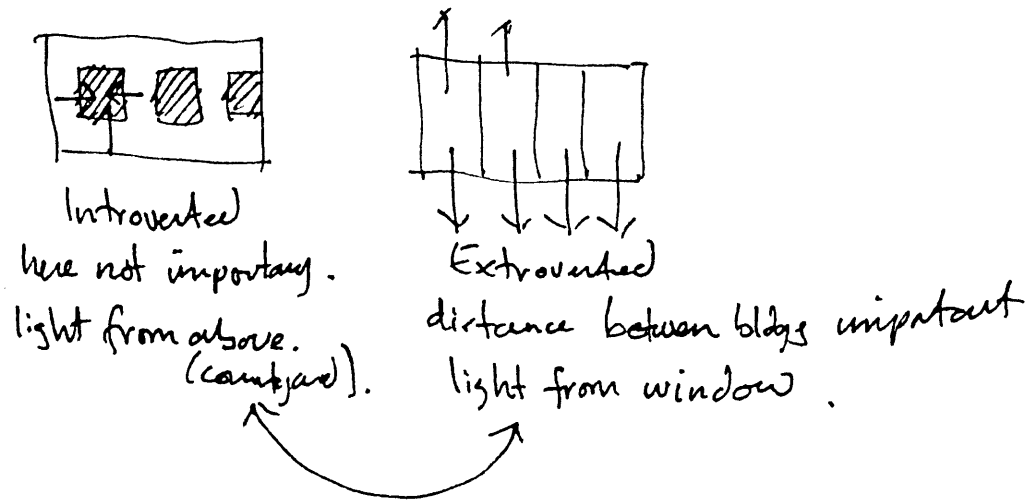 Introverted
here not important.
light from above.
(courtyard).
Extroverted
distance between bldgs important
light from window.